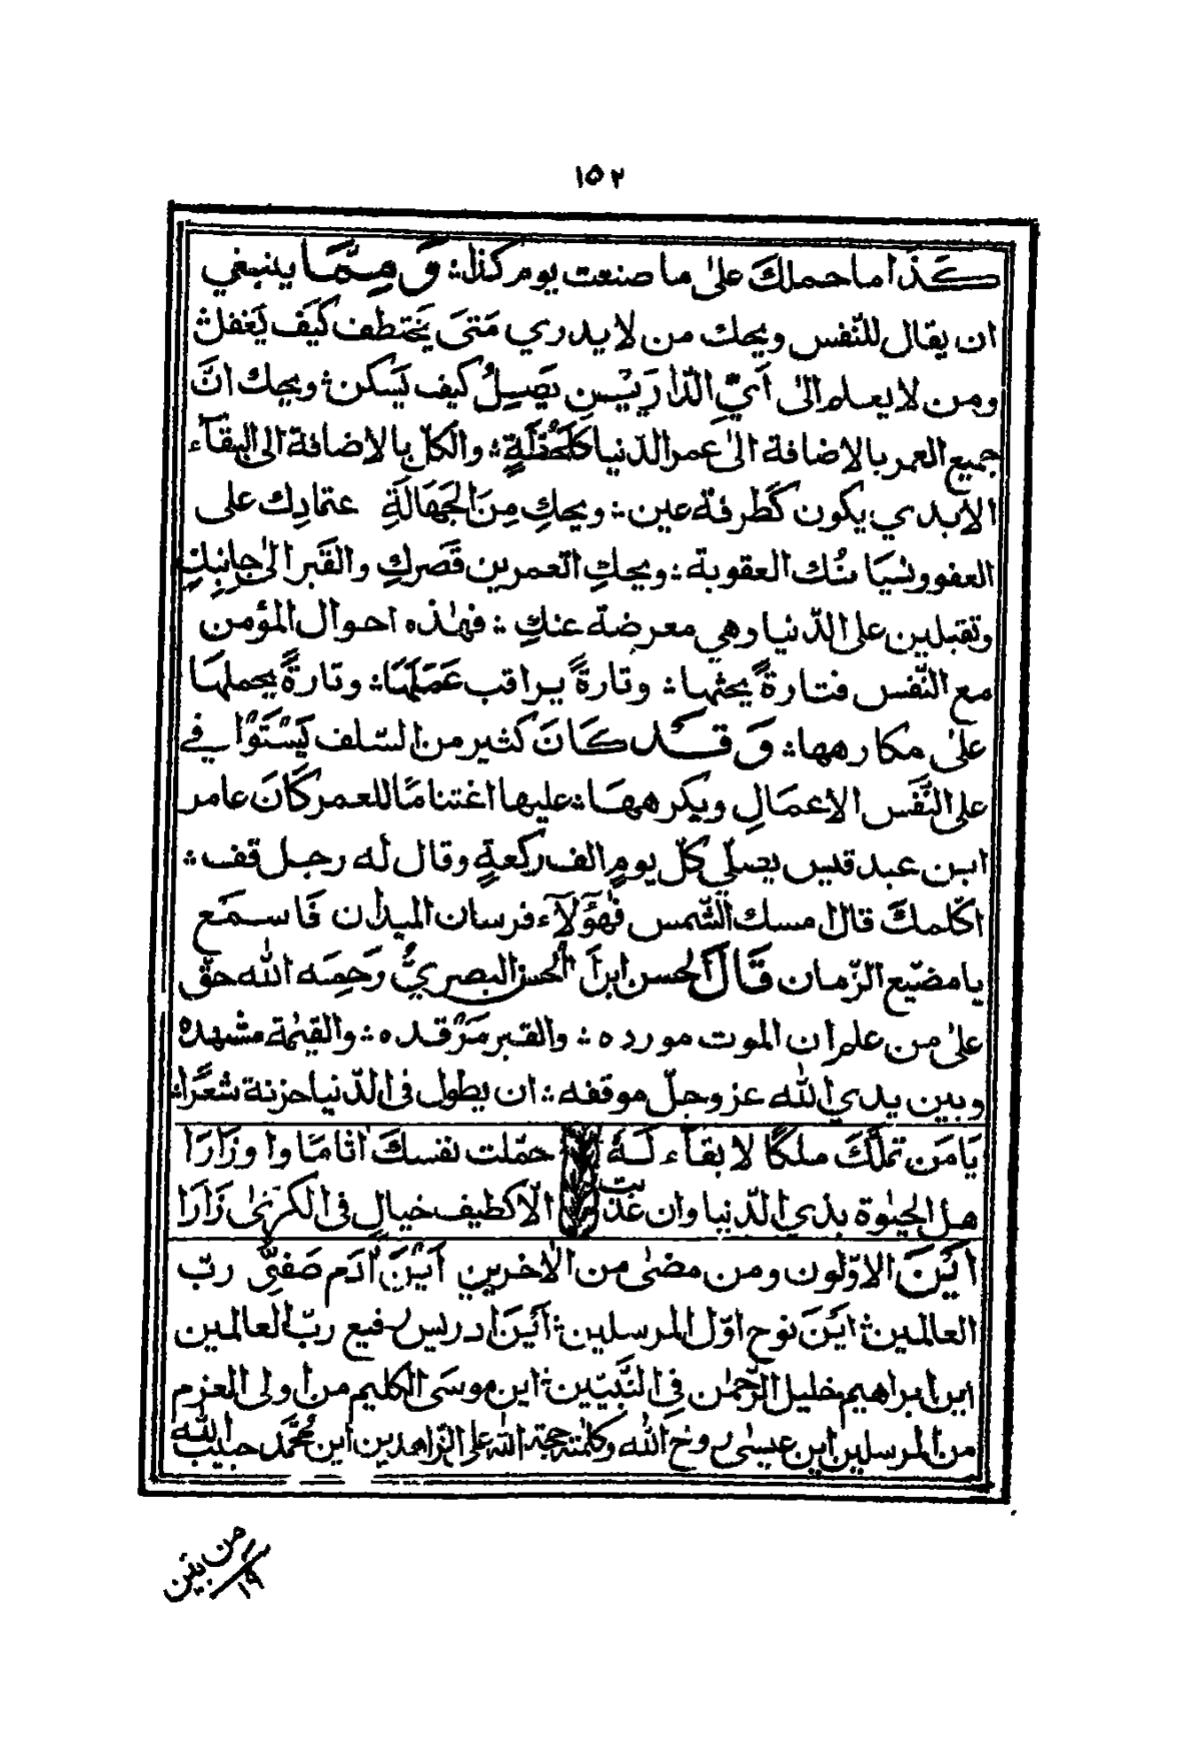 ١٥٢
كَذَا ما حملكَ على ما صنعت يوم كذا؞ وَ مِمَّا ينبغي
ان يقال للنّفس ويحك من لا يدري مَتىَ يَختطف كيَف يَغفل؞
ومن لا يعلم الىٰ اَيِّ الدّارَيْن يَصِيلُ كيف يَسكن؞ ويحك انَّ
جميع العمر بالاضافة الىٰ عمر الدّنيا كَلَحْظَةٍ؞ والكلّ بالاضافة الى البقآء
الابدي يكون كَطرفة عين؞ ويحكِ مِنَ الجَهَالَةِ عتمادِك على
العفو ونسيَا منُك العقوبة؞ ويحكِ اتعمرين قَصركِ والقَبر الىٰ جانِبكِ
وتقبلين على الدّنيا وهي معرضة عنكِ؞ فهٰذه احوال المؤمن
مع النّفس فتارةً يحثها؞ وتارةً يراقب عَمَلَهَا؞ وتارةً يحملهَا
علىٰ مكارهها؞ وَ قَد كَانَ كثير من السّلف يَسْتَوْا في
على النَّفَس الاعمَالِ ويكرههَا؞ عليها اغتنامًا للعمر كَانَ عامر
ابن عبد قيس يصلّي كلّ يومٍ الف ركعةٍ وقال له رجل قف؞
اكلمكَ قال امسك الشّمس فهٰؤلآء فرسان الميدان فَاسمَع
يا مضيّع الزّمان قَالَ الحسن ابن اَ الحسن البصريُّ رَحِمَه الله حقّ
علىٰ من علم ان الموت مورده؞ والقبر مَرْقده؞ والقيٰمة مشهده
وبين يدي الله عز وجلّ موقفه؞ ان يطول فى الدّنيا حزنة شعرًا؞
يَا مَن تملّكَ ملكًا لا بقآء لَهُ حمّلت نفسكَ اثامًا واوزَارَا
هل الحيٰوة بذي الدّنيا وان عذبت الّا كطيف خيالٍ فى الكرىٰ زَارَا
اَيْنَ الاوّلون ومن مضىٰ من الاٰخرين اَيْنَ اٰدَم صَفىُّ ربّ
العالمين؞ ايَنَ نوح اوّل المرسلين؞ اَيَنَ ادريس رفيع ربّ العالمين
اين ابراهيم خليل الرّحمٰن فى النّبيّين؞ اين موسَى الكليم من اولى العزم
من المرسلين اين عيسىٰ روح الله وكلمته حجة الله على الزّاهدين اين مُحمَّد حبيب الله